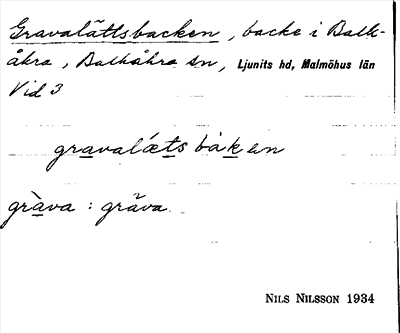 Gravalättsbacken, backe i Balk-
åkra, Balkåkra sn, Ljunits hd, Malmöhus län
Vid 3
gravalǽts bàken
gràva : grăva
NILS NILSSON 1934